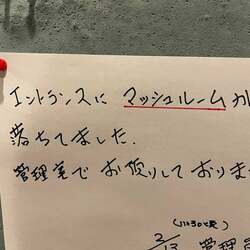 エントランスに マッシュルームが
落ちてました.
管理室で お預りしております
(11:30頃)
2/13 管理室